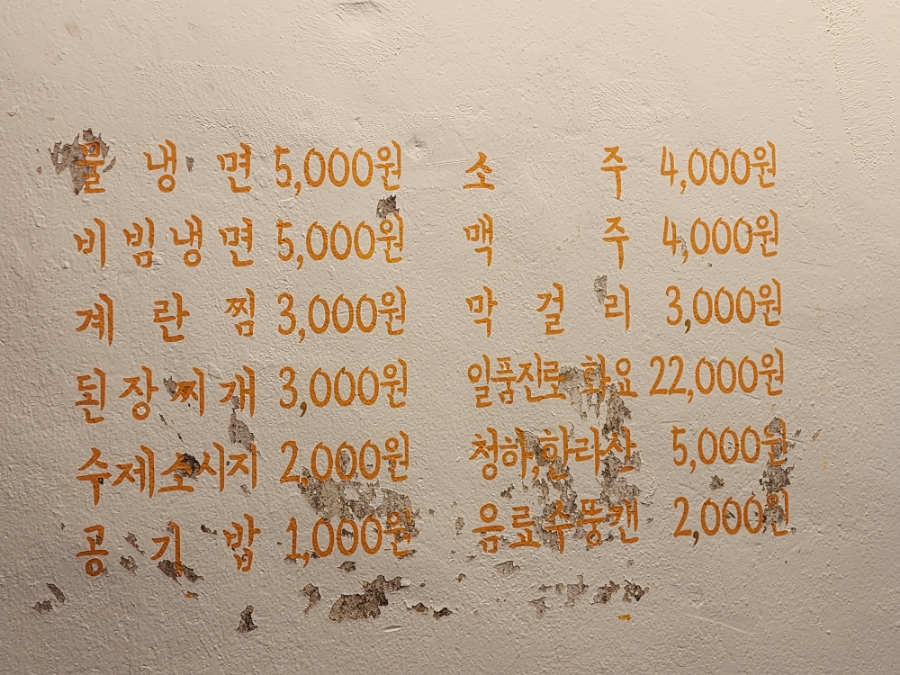 물냉면 5,000원
비빔냉면 5,000원
계란찜 3,000원
된장찌개 3,000원
수제소시지 2,000원
공기밥 1,000원
소주 4,000원
맥주 4,000원
막걸리 3,000원
일품진로 화요 22,000원
청하,한라산 5,000원
음료수뚱캔 2,000원